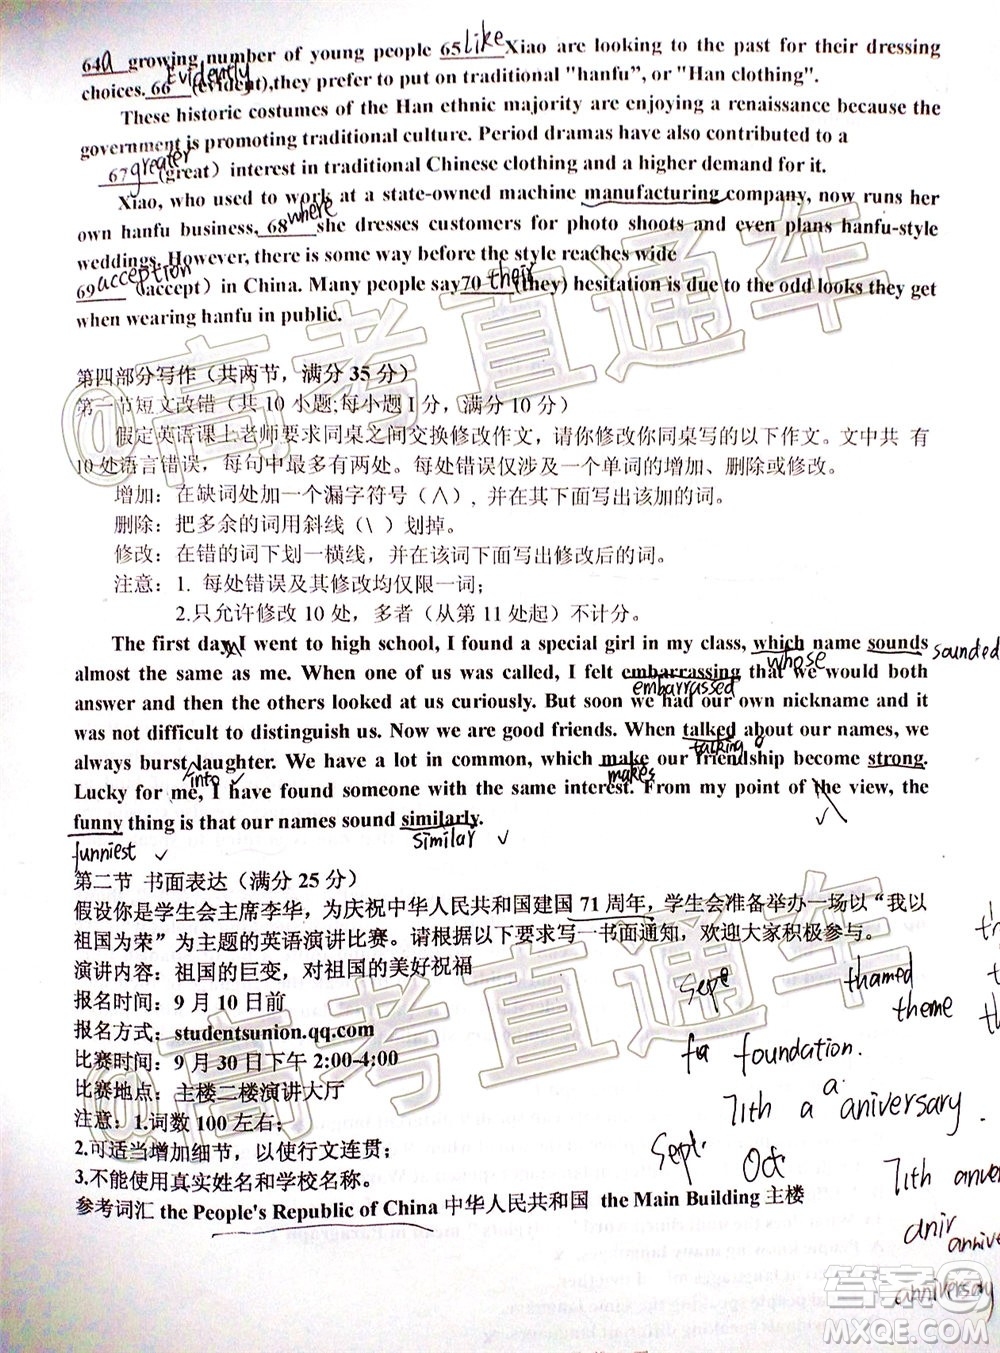 64 a growing number of young people 65 like Xiao are looking to the past for their dressing
choices. 66 Evidently (evident),they prefer to put on traditional "hanfu", or "Han clothing".
These historic costumes of the Han ethnic majority are enjoying a renaissance because the
government is promoting traditional culture. Period dramas have also contributed to a
67 greater (great) interest in traditional Chinese clothing and a higher demand for it.
Xiao, who used to work at a state-owned machine manufacturing company, now runs her
own hanfu business, 68 where she dresses customers for photo shoots and even plans hanfu-style
weddings. However, there is some way before the style reaches wide
69 acception (accept) in China. Many people say 70 their (they) hesitation is due to the odd looks they get
when wearing hanfu in public.
第四部分写作（共两节，满分 35 分）
第一节短文改错（共 10 小题;每小题 1 分，满分 10 分）
假定英语课上老师要求同桌之间交换修改作文，请你修改你同桌写的以下作文。文中共 有
10 处语言错误，每句中最多有两处。每处错误仅涉及一个单词的增加、删除或修改。
增加：在缺词处加一个漏字符号（∧），并在其下面写出该加的词。
删除：把多余的词用斜线（\）划掉。
修改：在错的词下划一横线，并在该词下面写出修改后的词。
注意：1. 每处错误及其修改均仅限一词；
2.只允许修改 10 处，多者（从第 11 处起）不计分。
The first day I went to high school, I found a special girl in my class, which name sounds sounded
whose
almost the same as me. When one of us was called, I felt embarrassing that we would both
embarrassed
answer and then the others looked at us curiously. But soon we had our own nickname and it
was not difficult to distinguish us. Now we are good friends. When talked about our names, we
talking
always burst laughter. We have a lot in common, which make our friendship become strong.
into makes
Lucky for me, I have found someone with the same interest. From my point of the view, the
funny thing is that our names sound similarly.
funniest similar
第二节 书面表达（满分 25 分）
假设你是学生会主席李华，为庆祝中华人民共和国建国 71 周年，学生会准备举办一场以“我以
祖国为荣”为主题的英语演讲比赛。请根据以下要求写一书面通知，欢迎大家积极参与。
演讲内容：祖国的巨变，对祖国的美好祝福
报名时间：9 月 10 日前
报名方式：studentsunion.qq.com
比赛时间：9 月 30 日下午 2:00-4:00
比赛地点：主楼二楼演讲大厅
注意：1.词数 100 左右；
2.可适当增加细节，以使行文连贯；
3.不能使用真实姓名和学校名称。
参考词汇 the People's Republic of China 中华人民共和国 the Main Building 主楼
Sept thamed
theme
fa foundation.
71th a a aniversary.
Sept. Oct
71th aniver
anir
annive
anniversary
@高考直通车
@高考直通车
答案圈
MXQE.COM